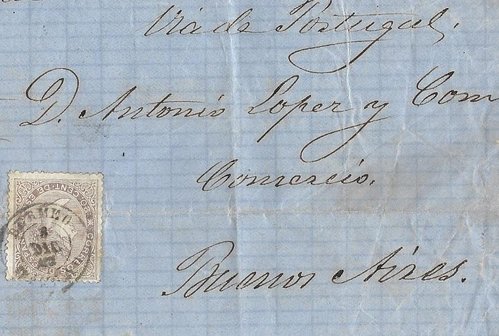 Via de Portugal.
D. Antonio Lopez y Com
Comercio.
Buenos Aires.
DIC